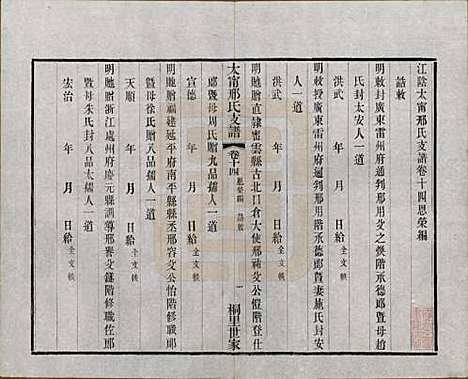 江陰太甯邢氏支譜卷十四恩榮編
誥敕
明敕封廣東雷州府通判邢用階承德郎暨母趙
氏封太安人一道
洪武 年 月 日給全文軼
明敕授廣東雷州府通判邢用階承德郎暨妻施氏安
人一道
洪武 年 月 日給全文軼
明貤贈直隸密雲縣古北口倉大使邢祎父公愷階登仕
太甯邢氏支譜 卷十四 恩榮編 誥敕 一 桐里世家
郎暨母周氏贈九品孺人一道
宣德 年 月 日給全文軼
明貤贈福建延平府南平縣縣丞邢 父公怡階修職郎
暨母徐氏贈八品孺人一道
天順 年 月 日給全文軼
明貤贈浙江處州府慶元縣訓導邢 父鏈階修職佐郎
暨母朱氏封八品太孺人一道
宏治 年 月 日給全文軼